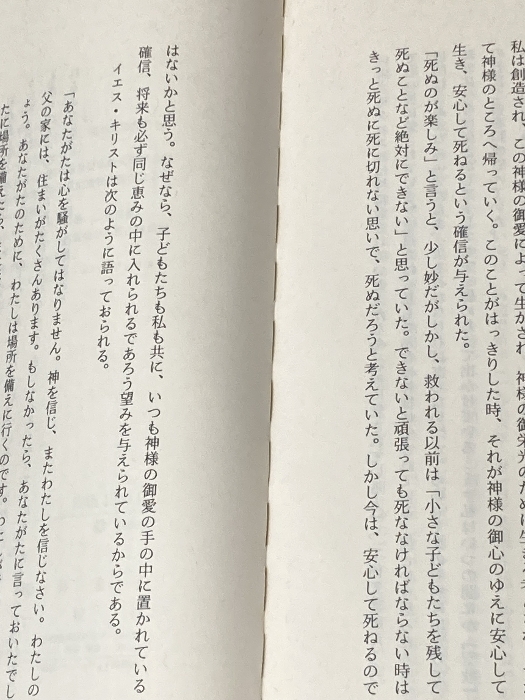 私は創造され、この神様の御愛によって生かされ、神様の御栄光のために生
て神様のところへ帰っていく。このことがはっきりした時、それが神様の御心のゆえに安心して
生き、安心して死ねるという確信が与えられた。
「死ぬのが楽しみ」と言うと、少し妙だがしかし、救われる以前は「小さな子どもたちを残して
死ぬことなど絶対にできない」と思っていた。できないと頑張っても死ななければならない時は
きっと死ぬに死に切れない思いで、死ぬだろうと考えていた。しかし今は、安心して死ねるので
はないかと思う。なぜなら、子どもたちも私も共に、いつも神様の御愛の手の中に置かれている
確信、将来も必ず同じ恵みの中に入れられるであろう望みを与えられているからである。
イエス・キリストは次のように語っておられる。
「あなたがたは心を騒がしてはなりません。神を信じ、またわたしを信じなさい。わたしの
父の家には、住まいがたくさんあります。もしなかったら、あなたがたに言っておいたでし
ょう。あなたがたのために、わたしは場所を備えに行くのです。
たに場所を備えたら、